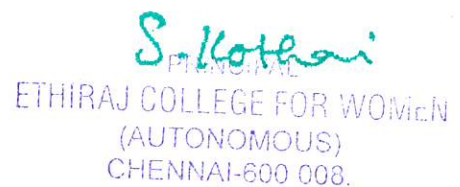 S. Kothai
PRINCIPAL
ETHIRAJ COLLEGE FOR WOMEN
(AUTONOMOUS)
CHENNAI-600 008.